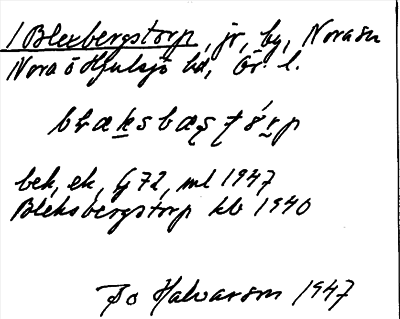 / Blexbergstorp, jr, by, Nora sn
Nora o Hjulsjö hd, Ör. l.
bek, ek, G 72, ml 1947
Bleksbergstorp kb 1940
Bo Halvarson 1947